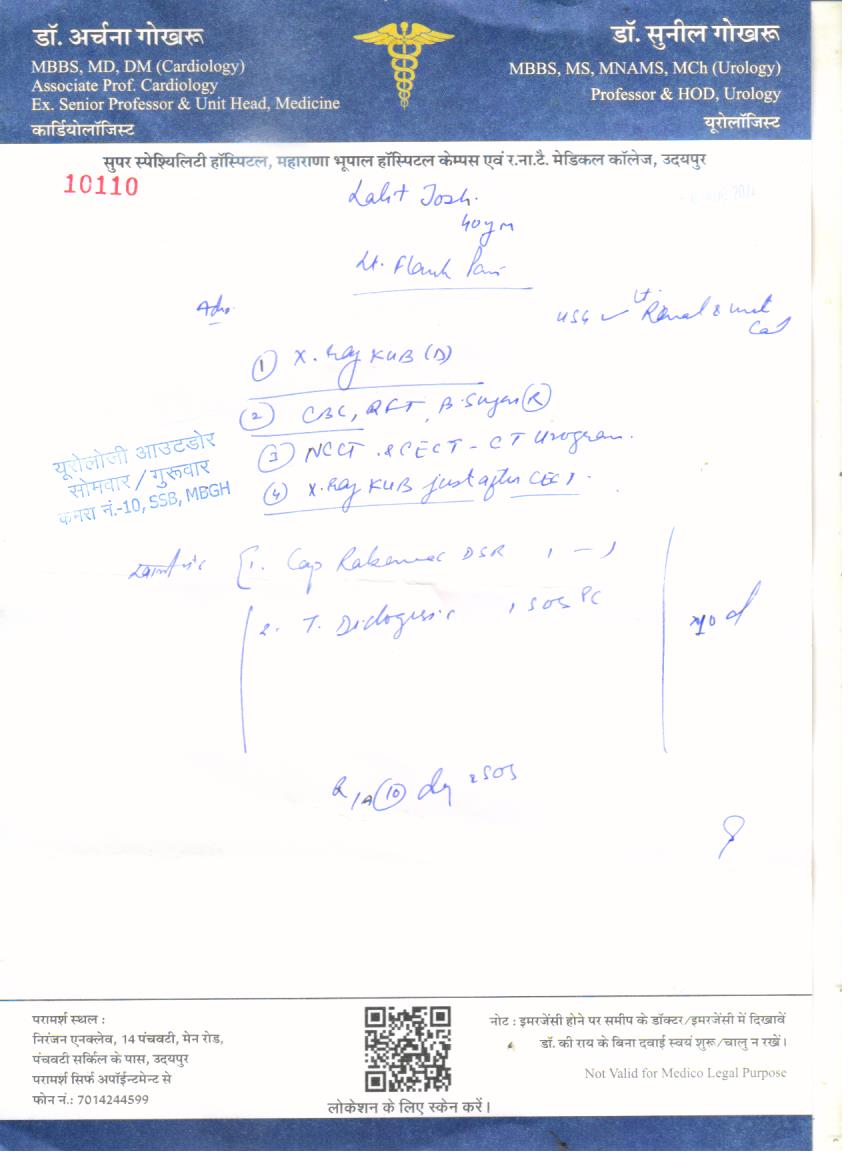 डॉ. अर्चना गोखरू
MBBS, MD, DM (Cardiology)
Associate Prof. Cardiology
Ex. Senior Professor & Unit Head, Medicine
कार्डियोलॉजिस्ट
डॉ. सुनील गोखरू
MBBS, MS, MNAMS, MCh (Urology)
Professor & HOD, Urology
यूरोलॉजिस्ट
सुपर स्पेश्यिलिटी हॉस्पिटल, महाराणा भूपाल हॉस्पिटल केम्पस एवं र.ना.टै. मेडिकल कॉलेज, उदयपुर
10110
Lalit Josh.
40 ym
Lt. Flank Pain
Adv.
USG Lt Renal &
① X. Ray KUB (D)
② CBC, RFT, B. Sugar (R)
③ NCCT & CECT - CT Urogram.
④ X. Ray KUB just after CECT.
यूरोलोजी आउटडोर
सोमवार / गुरूवार
कमरा नं.-10, SSB, MBGH
1. Cap DSR 1 - 1
2. T. 1 SOS PC
10 d
(10) dy SOS
परामर्श स्थल :
निरंजन एनक्लेव, 14 पंचवटी, मेन रोड,
पंचवटी सर्किल के पास, उदयपुर
परामर्श सिर्फ अपॉईन्टमेन्ट से
फोन नं.: 7014244599
लोकेशन के लिए स्केन करें।
नोट : इमरजेंसी होने पर समीप के डॉक्टर/इमरजेंसी में दिखावें
डॉ. की राय के बिना दवाई स्वयं शुरू/चालु न रखें।
Not Valid for Medico Legal Purpose